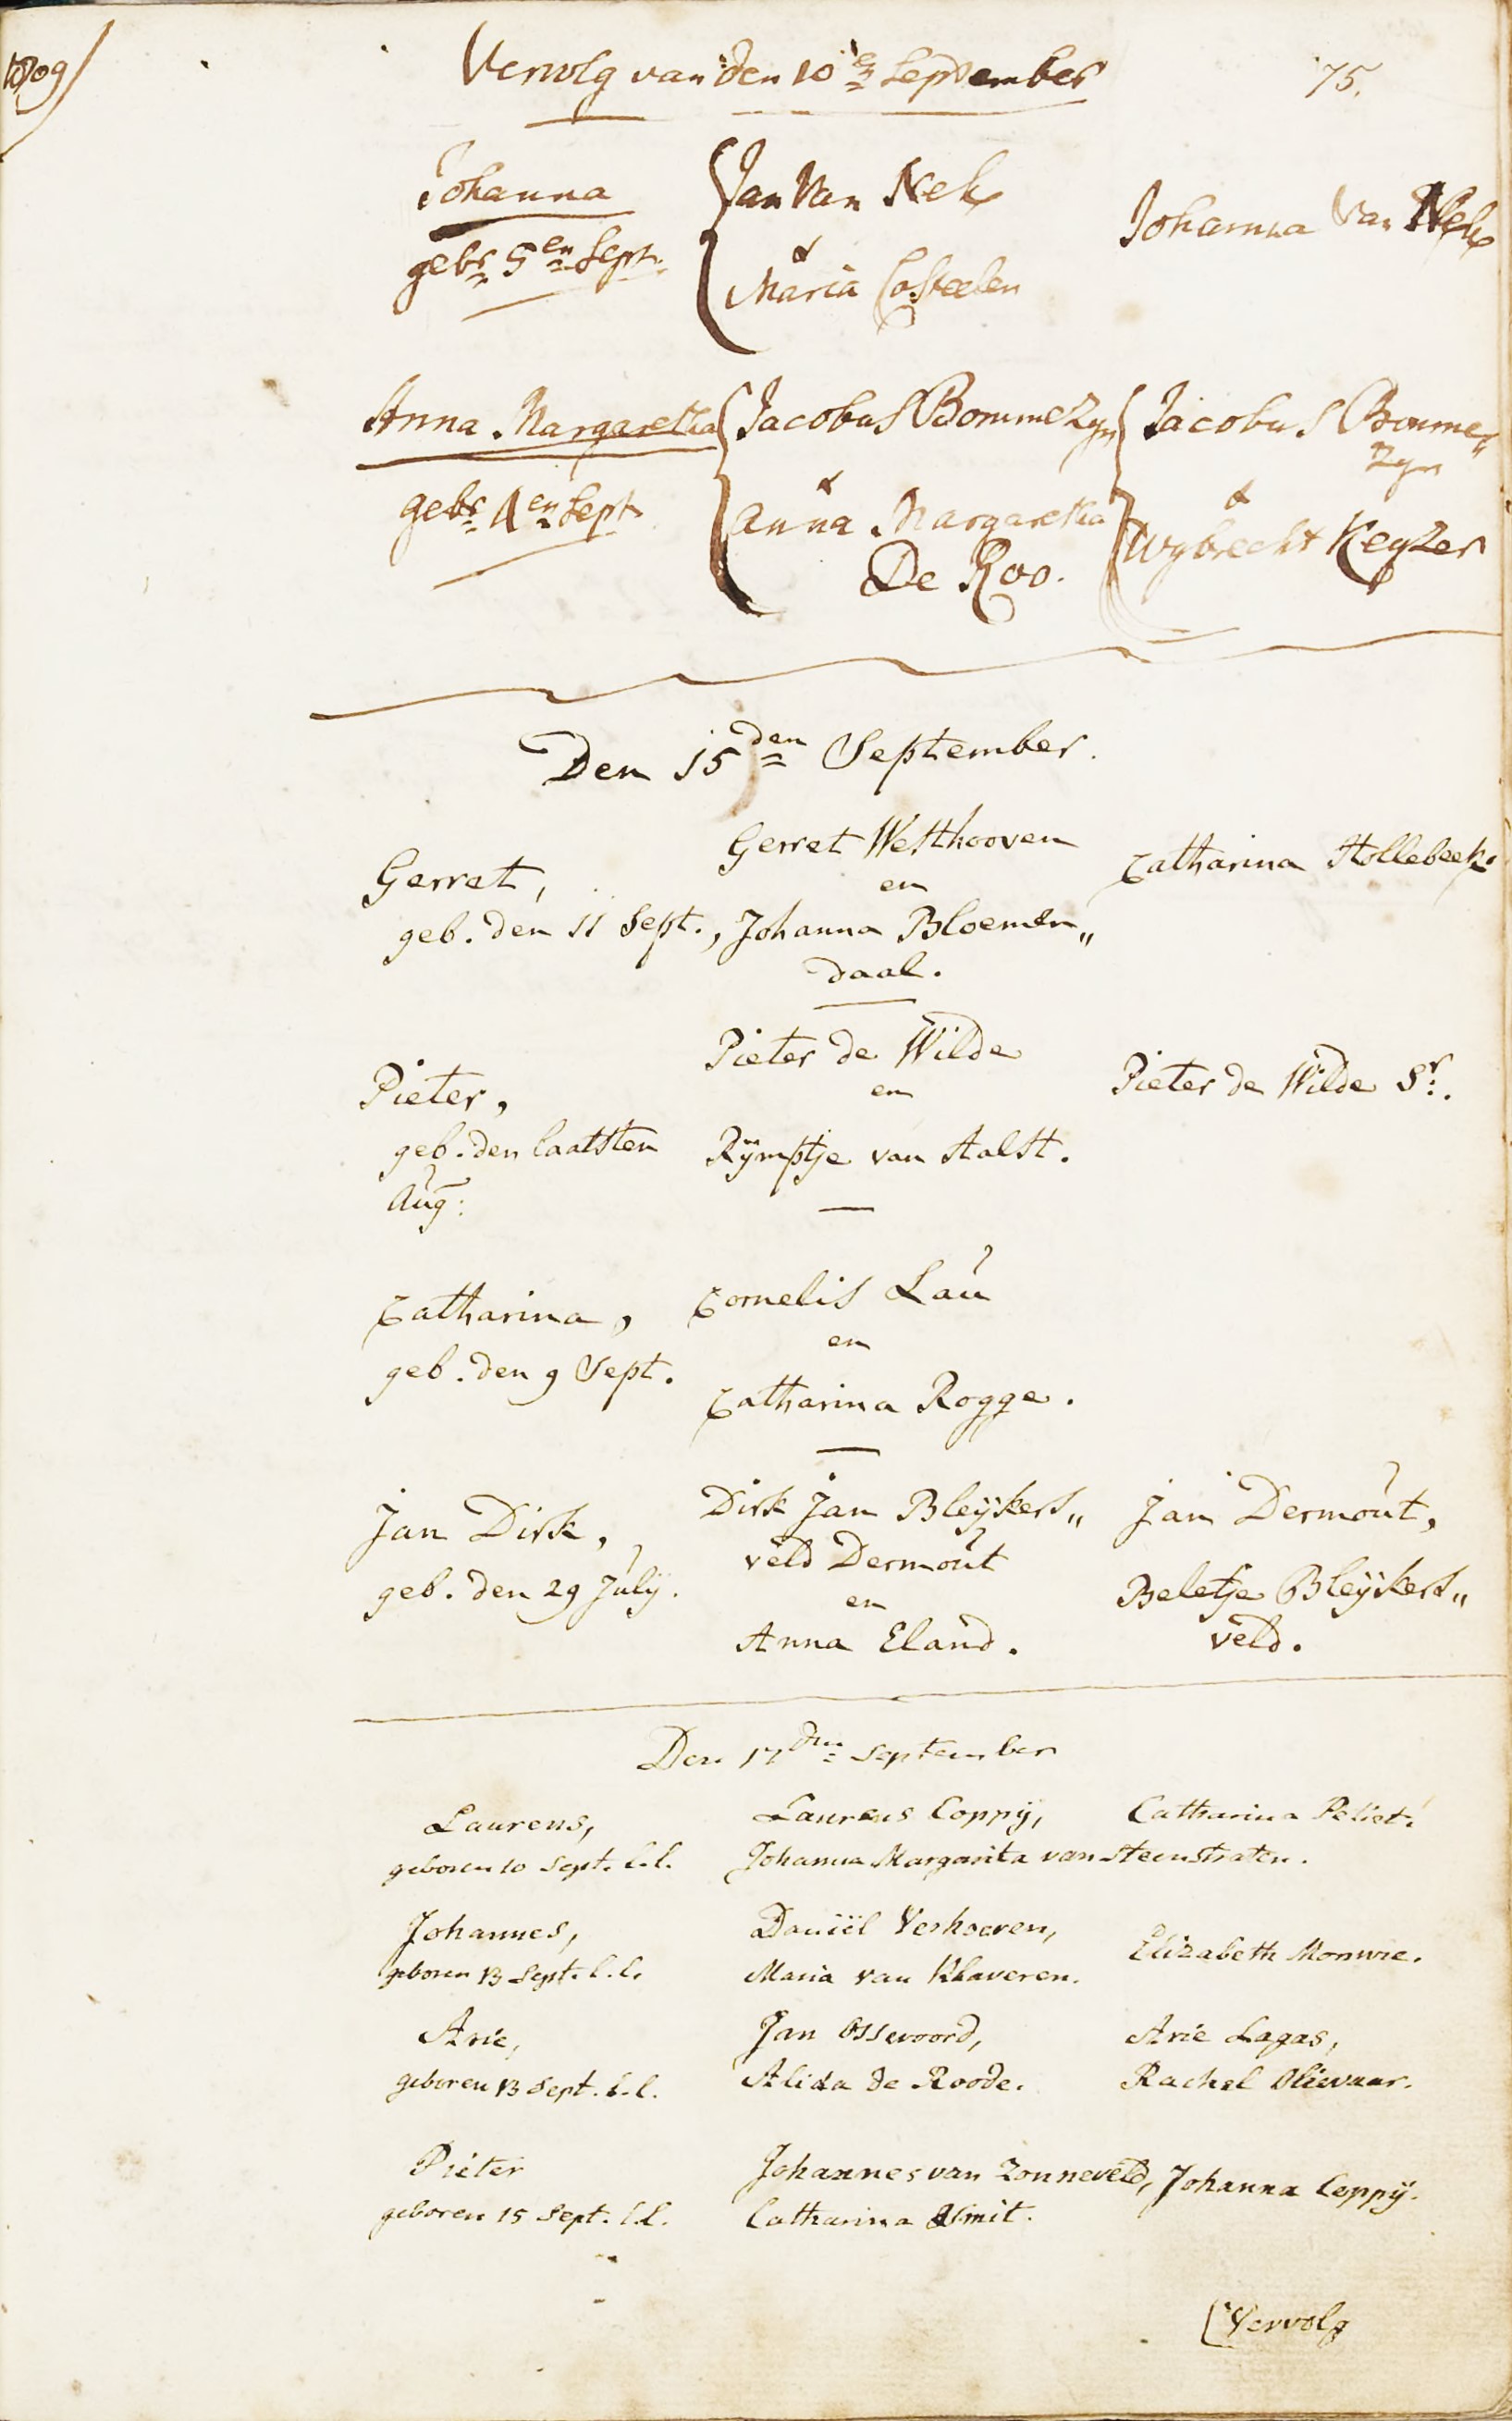 1809
Vervolg van den 10en September
75.
Johanna
gebr 5en Sept.
Jan Van Nek
&
Maria Costeelen
Johanna Van Nek
Anna Margaretha
gebr 4en Sept
Jacobus Bommezyn
&
Anna Margaretha
De Roo.
Jacobus Bomme„
zyn
&
Wybrecht Keyzer
Den 15den September.
Gerret,
geb. den 11 Sept.,
Gerret Westhooven
en
Johanna Bloemen„
daal.
Catharina Hollebeek.
Pieter,
geb. den laatsten
Aug:
Pieter de Wilde
en
Rÿmptje van Aalst.
Pieter de Wilde Sr:.
Catharina,
geb. den 9 Sept.
Cornelis Lau
en
Catharina Rogge.
Jan Dirk,
geb. den 29 Julÿ.
Dirk Jan Bleÿkers„
veld Dermout
en
Anna Eland.
Jan Dermout,
Beletje Bleÿkers„
veld.
Den 17den September
Laurens,
geboren 10 Sept. l.l.
Laurens Coppÿ,
Johanna Margarita van Steenstraten.
Catharina Peliet.
Johannes,
geboren 13 Sept. l.l.
Daniël Verhoeven,
Maria van Klaveren.
Elizabeth Monwie.
Arie,
geboren 13 Sept. l.l.
Jan Ossevoord,
Alida de Roode.
Arie Lagas,
Rachel Olievaar.
Pieter
geboren 15 Sept. l.l.
Johannes van Zonneveld,
Catharina Smit.
Johanna Coppÿ.
Vervolg